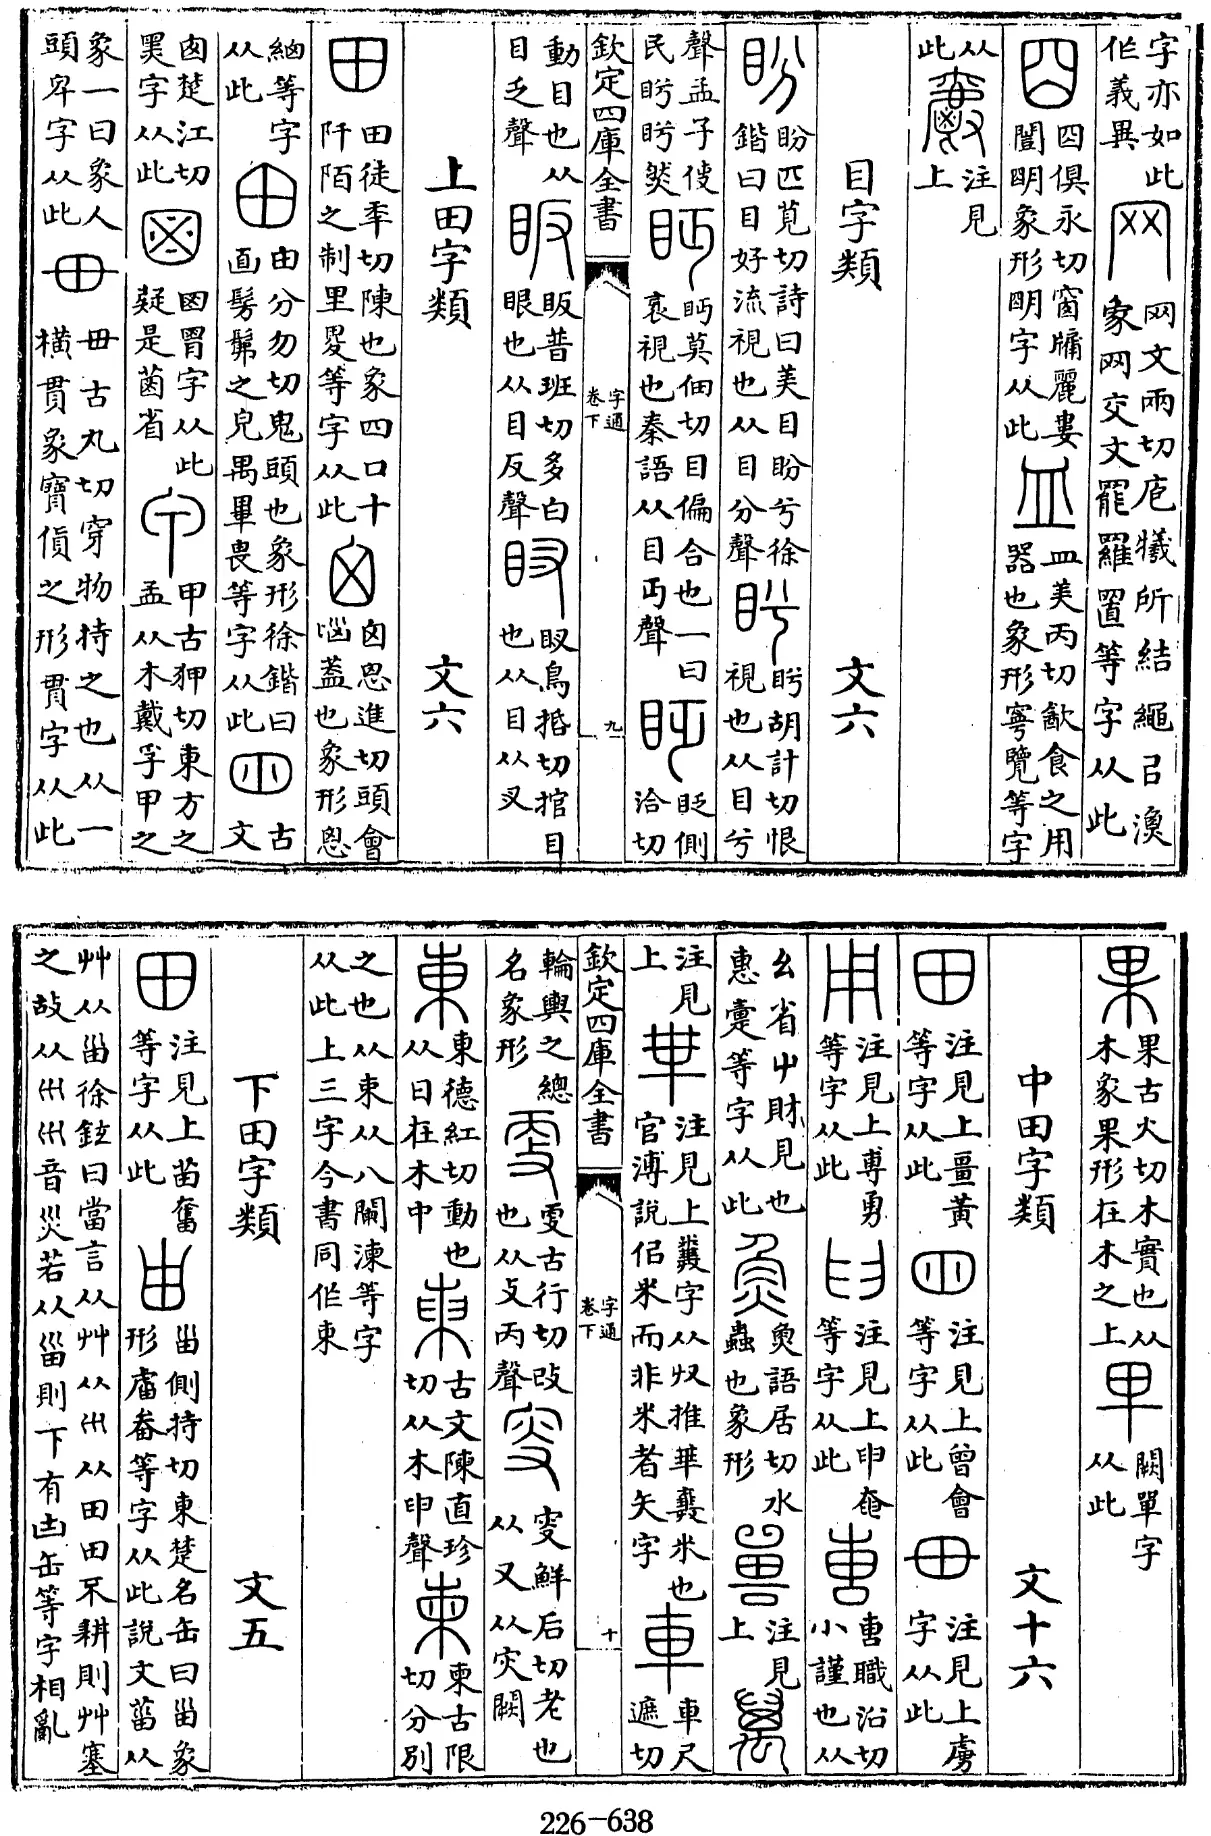 字亦如此作義異 网 网文兩切庖犧所結繩㠯漁象网交文罷羅置等字从此
囧 囧俱永切窗牖麗婁闓明象形明字从此 皿 皿美丙切飲食之用器也象形寧覽等字
从此 注見上
目字類 文六
盼 盼匹莧切詩曰美目盼兮徐鍇曰目好流視也从目分聲 盻 盻胡計切恨視也从目兮
聲孟子使民盻盻然 眄 眄莫佃切目偏合也一曰衺視也秦語从目丏聲 眨 眨側洽切
欽定四庫全書 字通卷下 九
動目也从目乏聲 眅 眅普班切多白眼也从目反聲 䀛 䀛烏括切捾目也从目从叉
上田字類 文六
田 田徒秊切陳也象四口十阡陌之制里畟等字从此 囟 囟思進切頭會𡿺蓋也象形恩
細等字从此 甶 甶分勿切鬼頭也象形徐鍇曰靣髣髴之皃禺畢畏等字从此 古文
囪楚江切黑字从此 𡇒 𡇒胃字从此疑是菌省 甲 甲古狎切東方之孟从木戴孚甲之
象一曰象人頭𢑑字从此 毌 毌古丸切穿物持之也从一橫貫象寶貨之形貫字从此
果 果古火切木實也从木象果形在木之上 闕單字从此
中田字類 文十六
田 注見上畺黃等字从此 注見上曾會等字从此 毌 注見上虜字从此
用 注見上尃勇等字从此 注見上申奄等字从此 叀 叀職沿切小謹也从
幺省屮財見也惠疐等字从此 魚 魚語居切水蟲也象形 嘼 注見上 萬
注見上 𠦒 注見上糞字从廾推𠦒糞釆也官溥說似米而非米者矢字 車 車尺遮切
欽定四庫全書 字通卷下 十
輪輿之總名象形 㪅 㪅古行切改也从攴丙聲 叜 叜鮮后切老也从又从灾闕
東 東德紅切動也从日在木中 𨸬 古文陳直珍切从木申聲 柬 柬古限切分別
之也从束从八闌湅等字从此上三字今書同作東
下田字類 文五
田 注見上苗奮等字从此 甾 甾側持切東楚名缶曰甾象形䖒畚等字从此說文葘从
艸从甾徐鉉曰當言从艸从巛从田田不耕則艸塞之故从巛巛音災若从甾則下有甾缶等字相亂
226-638